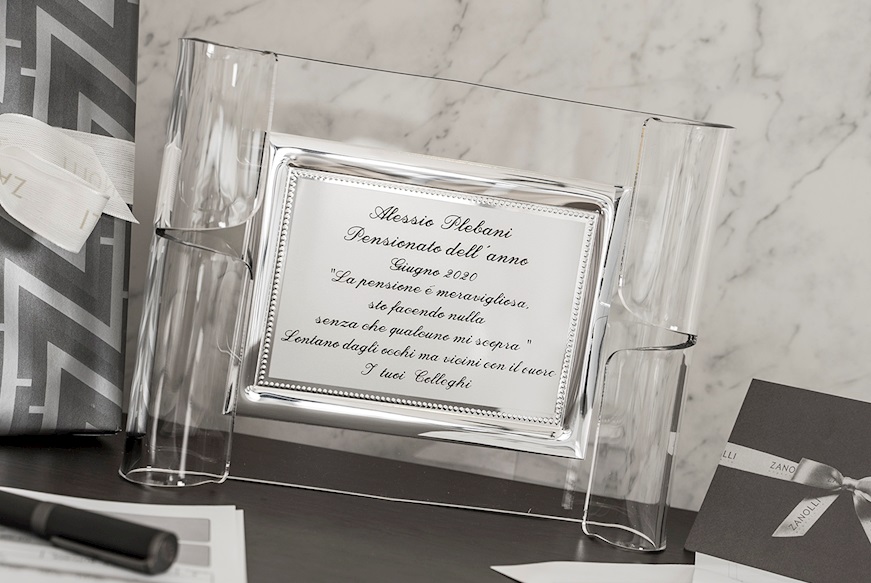 Alessio Plebani
Pensionato dell'anno
Giugno 2020
"La pensione é meravigliosa,
sto facendo nulla
senza che qualcuno mi scopra "
Lontano dagli occhi ma vicini con il cuore
I tuoi Colleghi
ZANOLLI
ZANOLLI